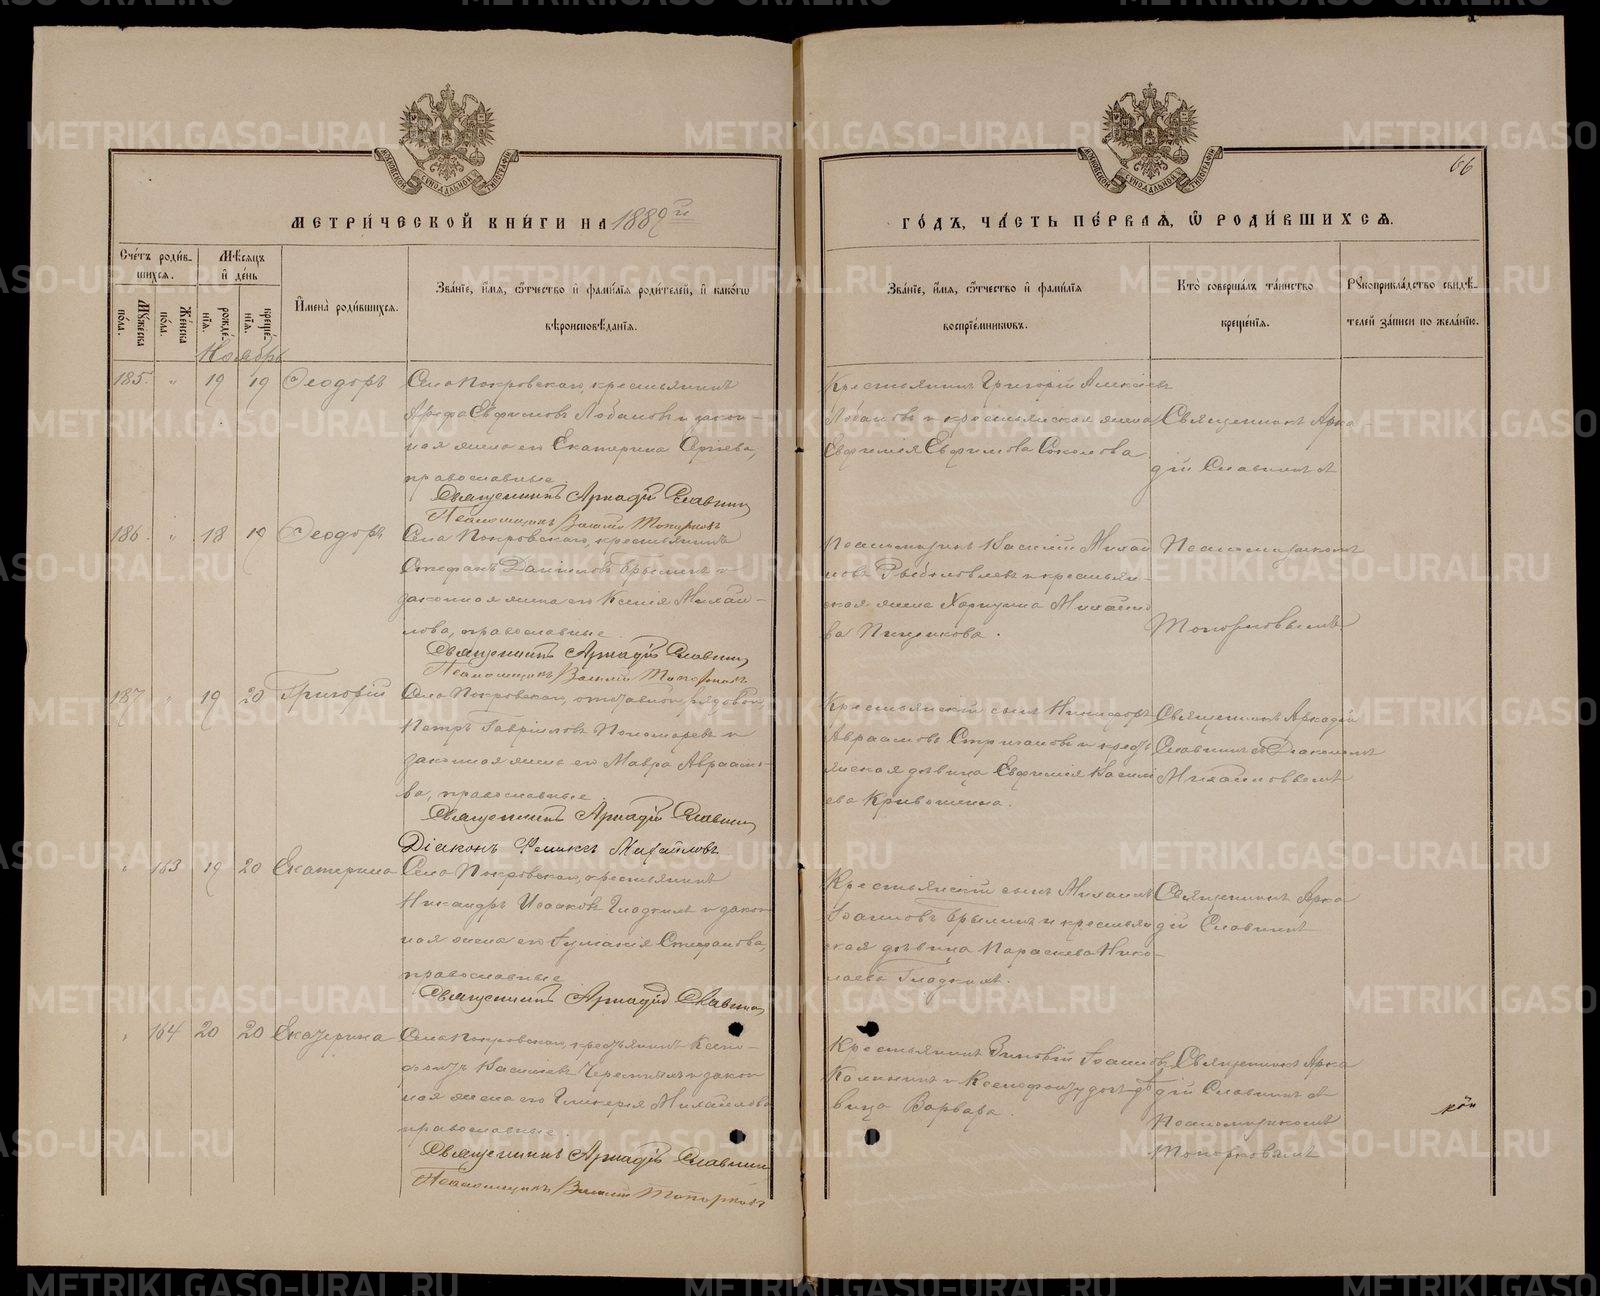 МЕТРИ́ЧЕСКОЙ КНИ́ГИ НА 1889 й
ГО́ДЪ, ЧА́СТЬ ПЕ́РВАѦ, Ѡ҆ РОДИ́ВШИХСѦ.
66
Сче́тъ роди́в-
шихся.
Мѣ́сяцъ
и҆ де́нь
Му́жеска
по́ла.
Же́нска
по́ла.
рожде́-
нїя.
креще́-
нїя.
И҆мена̀ роди́вшихся.
Зва́нїе, и҆́мя, ѻ҆́тчество и҆ фами́лїя роди́телей, и҆ како́гѡ
вѣроисповѣ́данїя.
Зва́нїе, и҆́мя, ѻ҆́тчество и҆ фами́лїя
воспрїе́мниковъ.
Кто̀ соверша́лъ та́инство
креще́нїя.
Рꙋкоприкла́дство свидѣ́-
телей за́писи по жела́нїю.
Ноябрь
185. " 19 19 Ѳеодоръ
Села Покровскаго, крестьянинъ
Ефимовъ Лобановъ и закон-
ная жена его Екатерина Сергіева,
православные
Священникъ Аркадій Славнин
Псаломщикъ Василій Топорковъ
Крестьянинъ Григорій Алексіевъ
Лобановъ и крестьянская жена
Евфимія Евфимова Соколова
Священникъ Арка-
дій Славнинъ
186. " 18 19 Ѳеодоръ
Села Покровскаго, крестьянинъ
Стефанъ Даніиловъ Брылинъ и
законная жена его Ксенія Михаи-
лова, православные
Священникъ Аркадій Славнин
Псаломщикъ Василій Топорковъ
Псаломщикъ Василій Михаи
ловъ Рыболовлевъ и крестьян-
ская жена Харитина Михаило
ва
Псаломщикомъ
Топорковымъ
187 " 19 20 Григорій
Села Покровскаго, отставной рядовой
Петръ Гавріиловъ Пономаревъ и
законная жена его Мавра Авраамо-
ва, православные
Священникъ Аркадій Славнин
Діаконъ Феликсъ Михайловъ
Крестьянскій сынъ Никифоръ
Авраамовъ Стригановъ и кресть
янская дѣвица Евфимія Васил
ева Кривошеина.
Священникъ Аркадій
Славнинъ съ Діакономъ
Михайловымъ
" 163 19 20 Екатерина
Села Покровскаго, крестьянинъ
Никандръ Исааковъ Гладкихъ и закон
ная жена его Іуліанія Стефанова,
православные
Священникъ Аркадій Славнин
Крестьянскій сынъ Михаилъ
Іоанновъ Брылинъ и крестьян
ская дѣвица Параскева Нико-
лаева Гладкихъ.
Священникъ Арка
дій Славнинъ
" 164 20 20 Екатерина
Села Покровскаго, крестьянинъ Ксено-
фонтъ Васильевъ и закон
ная жена его Гликерія Михаилова
православные
Священникъ Аркадій Славнин
Псаломщикъ Василій Топорковъ
Крестьянинъ Зиновій Іоаннов
Калининъ и Ксенофонту дочь дѣ
вица Варвара.
Священникъ Арка
дій Славнинъ съ
Псаломщикомъ
Топорковымъ
METRIKI.GASO-URAL.RU